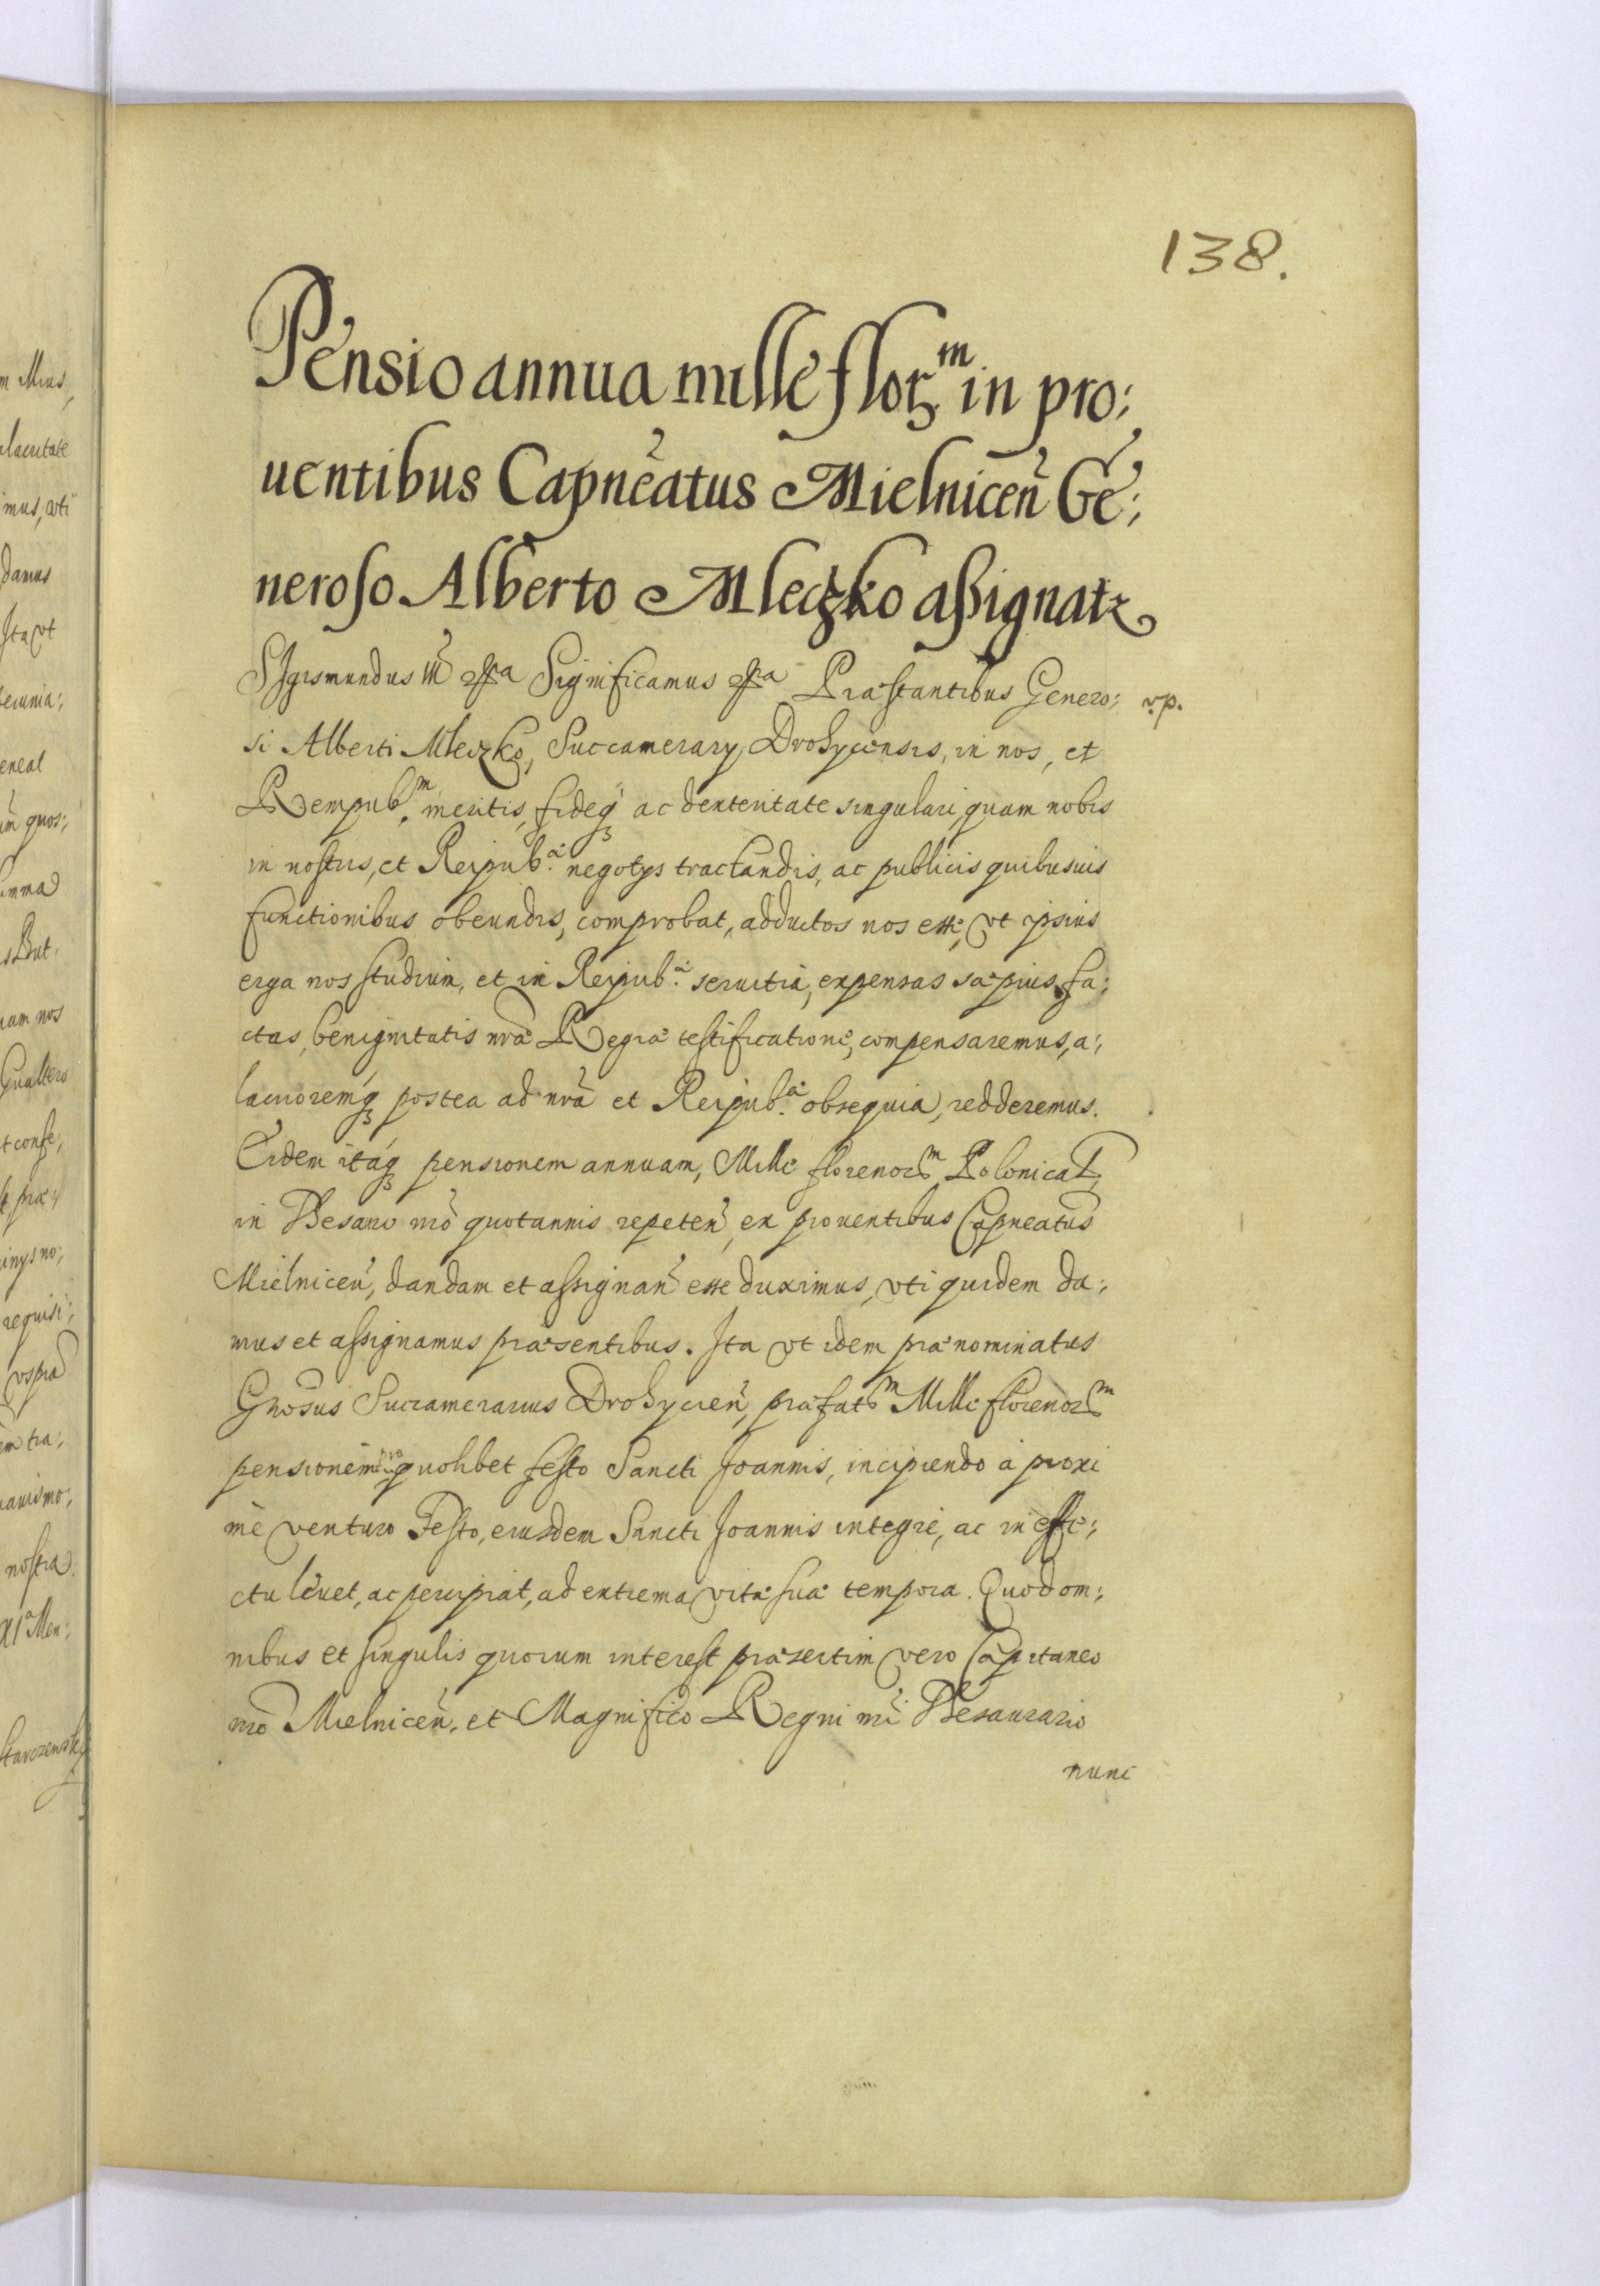 138.
Pensio annua mille flor^m in pro;
uentibus Capneatus Mielnicen̄ Ge;
neroso Alberto Mleczko assignat
Sigismundus III Significamus Præstantibus Genero; v.p.
si Alberti Mleczko, Succamerary Drohyciensis, in nos, et
Rempub^m. meritis, fideq ac dexteritate singulari, quam nobis
in nostris, et Reipub^æ. negotys tractandis, ac publicis quibusuis
functionibus obeundis, comprobat, adductos nos esse, vt ipsius
erga nos studium, et in Reipub^æ. seruitia, expensas sæpius fa;
ctas, benignitatis nræ Regiæ testificatione, compensaremus, a;
lacrioremq postea ad nra et Reipub^æ. obsequia, redderemus.
Eidem itaq pensionem annuam, Mille florenor^m Polonical,
in Thesauro nro quotannis repeten̄, ex prouentibus Capneatus
Mielnicen̄, dandam et assignan̄ esse duximus, vti quidem da;
mus et assignamus præsentibus. Ita vt idem prænominatus
Gnosus Succamerarius Drohycien̄, præfat^m Mille florenor^m
pensionem pro quolibet festo Sancti Joannis, incipiendo à proxi
mè venturo Festo, eiusdem Sancti Joannis integrè, ac in effe;
ctu leuet, ac percipiat, ad extrema vitæ suæ tempora. Quod om;
nibus et singulis quorum interest præsertim vero Capitaneo
nro Mielnicen̄, et Magnifico Regni nri Thesaurario
nunc